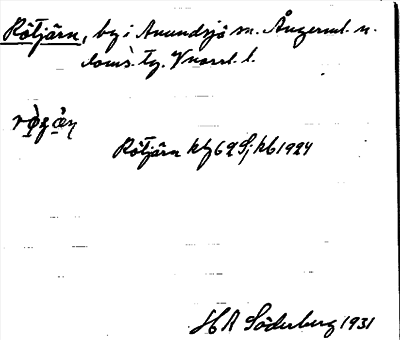 Rötjärn, by i Anundsjö sn. Ångerml. n.
doms. tg. Vnorrl. l.
Rötjärn kbg 62 Sj kb 1924
HR Söderberg 1931